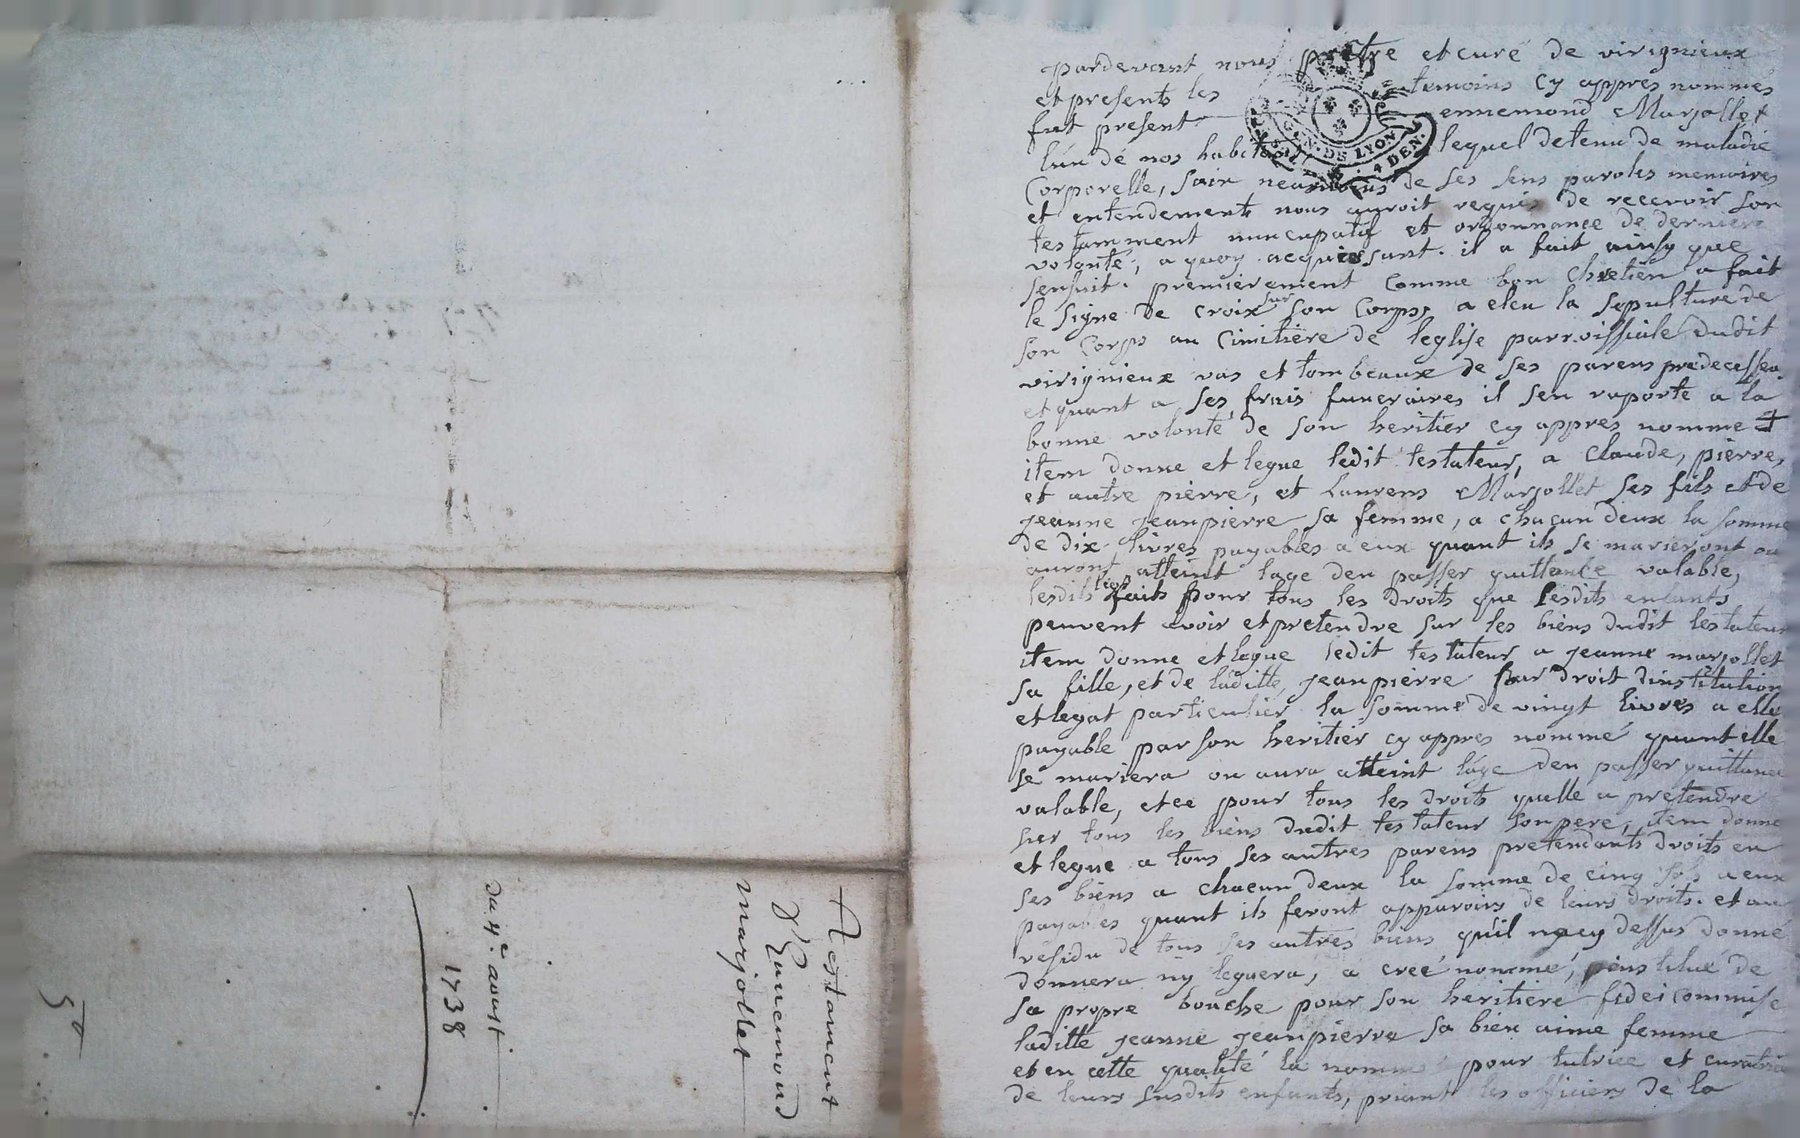 Testament
d'Ennemond
marjollet
du 4e. aoust
1738
5o
pardevant nous prêtre et curé de virignieux
et presents les temoins cy apprés nommés
fut present ennemond Marjollet
lún dé nos habitans lequel detenu de maladie
Corporelle, sain neanmoins de ses sens paroles memoires
et entendements nous auroit requis de recevoir son
testamment nuncupatif et ordonnance de derniere
volonté, a quoy acquiessant. il a fait ainsy que
sensuit. premierement Comme bon Chretien a fait
le signe de croix sur son Corps, a eleu la sepulture de
son Corps au Cimitière de leglise parroissiale dudit
virignieux vas et tombeaux de ses parens predecesseu.
et quant a ses frais funeraires il sen raporte a la
bonne volonté de son heritier cy appres nommé
item donne et legue ledit testateur, a Claude, pierre,
et autre pierre, et Laurens Marjollet ses fils et de
jeanne jeanpierre sa femme, a chacun deux la somme
de dix livres payables a eux quant ils se marieront ou
auront atteint lage den passer quittance valable,
lesdits legs faits pour tous les droits que lesdits enfants
peuvent avoir et pretendre sur les biens dudit testateur
item donne et legue ledit testateur a jeanne marjollet
sa fille, et de laditte jeanpierre par droit dinstitution
et legat particulier la somme de vingt livres a elle
payable par son heritier cy appres nommé quant elle
se mariera ou aura atteint láge den passer quittance
valable, et ce pour tous les droits quelle a pretendre
sur tous les biens dudit testateur son pere, item donne
et legue a tous ses autres parens pretendants droits en
ses biens a chacun deux la somme de cinq sols a eux
payables quant ils feront apparoirs de leurs droits. et au
résidu de tous ses autres biens qu'il na cy dessus donné
donnera ny leguera, a creé nommé, institué de
sa propre bouche pour son heritiere fideicommise
laditte jeanne jeanpierre sa bien aime femme
et en cette qualité la nomme pour tutrice et curatrice
de leurs susdits enfants, priant les officiers de la